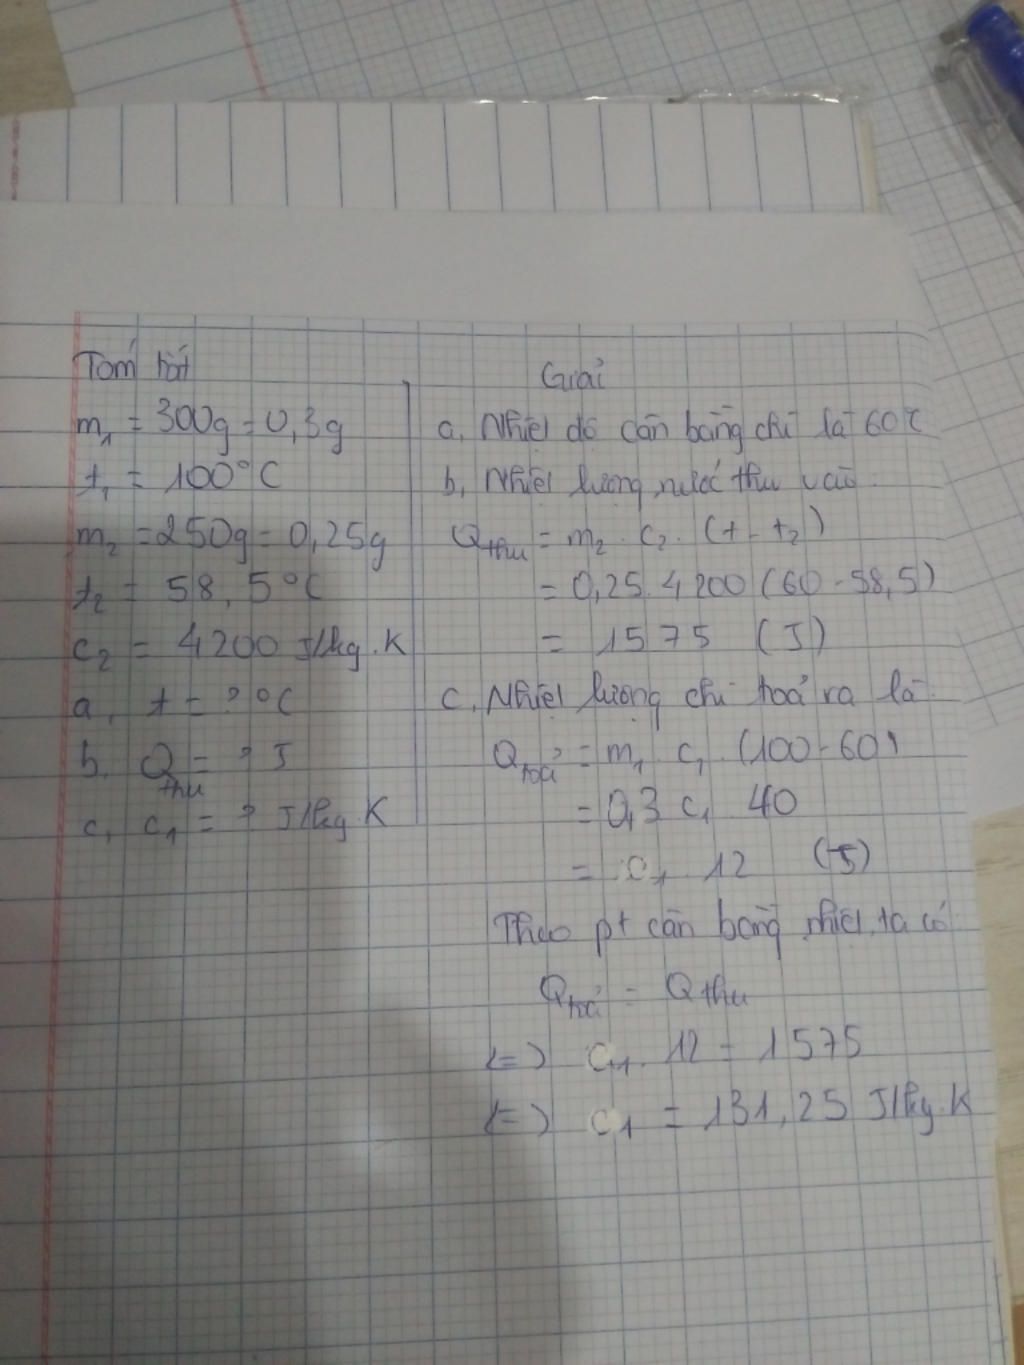 Tóm tắt
m₁ = 300g = 0,3g
t₁ = 100°C
m₂ = 250g = 0,25g
t₂ = 58,5°C
c₂ = 4200 J/kg.K
a, t = ? °C
b. Qthu = ? J
c, c₁ = ? J/kg.K
Giải
a, Nhiệt độ cân bằng chì là 60°C
b, Nhiệt lượng nước thu vào:
Qthu = m₂ . c₂ . (t - t₂)
= 0,25.4200(60-58,5)
= 1575 (J)
c, Nhiệt lượng chì toả ra là
Qtoả = m₁ . c₁ . (100-60)
= 0,3 c₁ 40
= c₁ 12 (J)
Theo pt cân bằng nhiệt, ta có
Qtoả = Qthu
(=) c₁. 12 = 1575
(=) c₁ = 131,25 J/kg.K